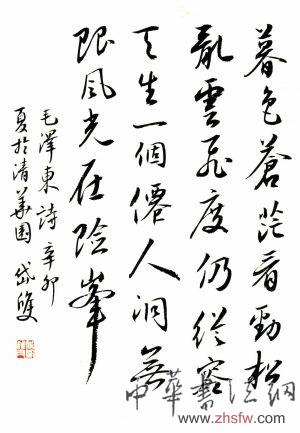 暮色蒼茫看勁松
亂雲飛度仍從容
天生一個僊人洞無
限風光在險峯
毛澤東詩辛卯
夏於清華園岱
中華書法網
www.zhsfw.com